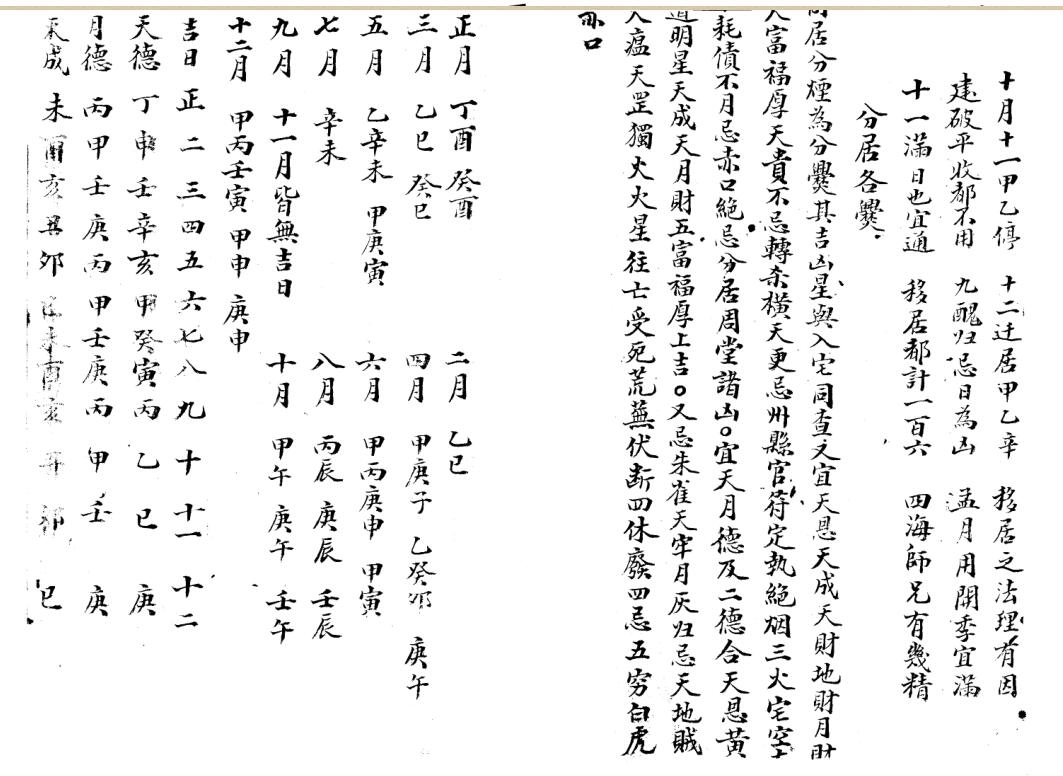 十月十一甲乙停　十二迁居甲乙辛　移居之法理有因
建破平收都不用　九醜归忌日為凶　孟月用開季宜滿
十一滿日也宜通　移居都計一百六　四海師兄有幾精
分居各爨
居分煙為分爨其吉凶星與入宅同查之宜天恩天成天財地財月財
富福厚天貴不忌轉杀橫天更忌州縣官符定執絕烟三火宅空
耗債不月忌赤口絕忌分居周堂諸凶○宜天月德及二德合天恩黃
道明星天成天月財五富福厚上吉○又忌朱雀天牢月灰归忌天地賊
瘟天罡獨火火星往亡受死荒蕪伏断四休廢四忌五穷白虎
赤口
正月　丁酉　癸酉　二月　乙巳
三月　乙巳　癸巳　四月　甲庚子　乙癸卯　庚午
五月　乙辛未　甲庚寅　六月　甲丙庚申　甲寅
七月　辛未　八月　丙辰　庚辰　壬辰
九月　十一月皆無吉日　十月　甲午　庚午　壬午
十二月　甲丙壬寅　甲申　庚申
吉日　正　二　三　四　五　六　七　八　九　十　十一　十二
天德　丁　申　壬　辛　亥　甲　癸　寅　丙　乙　巳　庚
月德　丙　甲　壬　庚　丙　甲　壬　庚　丙　甲　壬　庚
天成　未　酉　亥　丑　卯　巳　未　酉　亥　丑　卯　巳